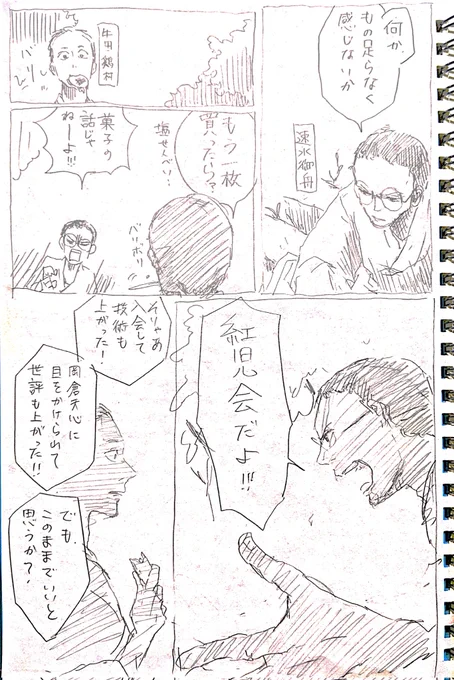 何か
もの足らなく
感じないか
速水御舟
バリッ
牛田鷄村
もう一枚
買ったら?
塩せんべい…
バリボリ
菓子の
話じゃ
ねーよ!!
紅児会だよ!!!
そりゃあ
入会して
技術も
上がった!
岡倉天心に
目をかけられて
世評も上がった!!
でも、
このままでいいと
思うか?